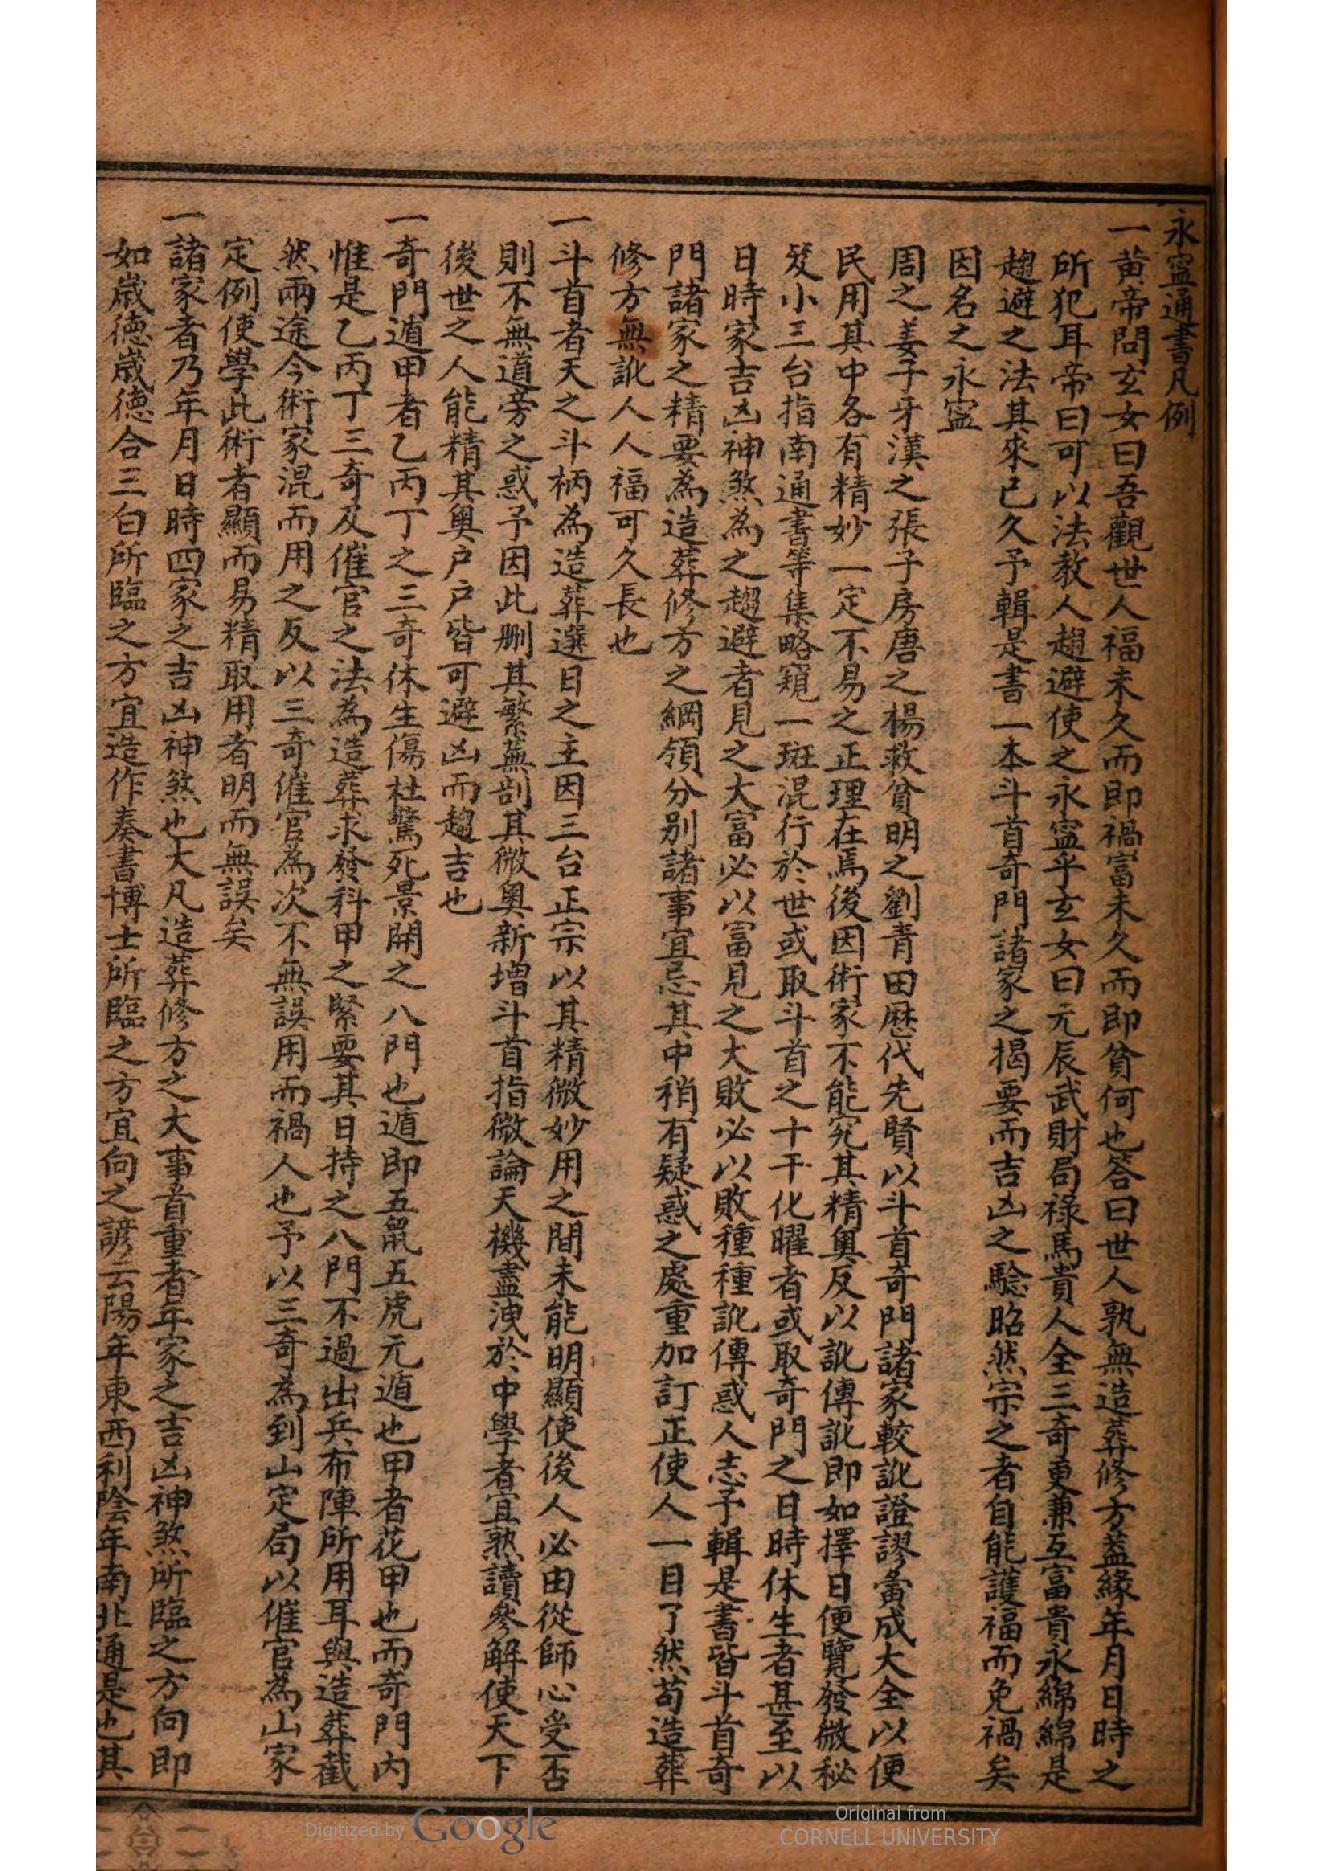 永寧通書凡例
一黃帝問玄女曰吾觀世人福未久而即禍富未久而即貧何也答曰世人孰無造葬修方蓋緣年月日時之
所犯耳帝曰可以法教人趨避使之永寧乎玄女曰元辰武財局祿馬貴人全三奇更兼互富貴永綿綿是
趨避之法其來已久予輯是書一本斗首奇門諸家之揭要而吉凶之驗昭然宗之者自能護福而免禍矣
因名之永寧
周之姜子牙漢之張子房唐之楊救貧明之劉青田歷代先賢以斗首奇門諸家較訛證謬彙成大全以便
民用其中各有精妙一定不易之正理在焉後因術家不能究其精奧反以訛傳訛即如擇日便覽發微秘
笈小三台指南通書等集略窺一斑混行於世或取斗首之十干化曜者或取奇門之日時休生者甚至以
日時家吉凶神煞為之趨避者見之大富必以富見之大敗必以敗種種訛傳惑人志予輯是書皆斗首奇
門諸家之精要為造葬修方之綱領分別諸事宜忌其中稍有疑惑之處重加訂正使人一目了然苟造葬
修方無訛人人福可久長也
一斗首者天之斗柄為造葬選日之主因三台正宗以其精微妙用之間未能明顯使後人必由從師心受否
則不無道旁之惑予因此刪其繁蕪剖其微奧新增斗首指微論天機盡洩於中學者宜熟讀參解使天下
後世之人能精其奧戶戶皆可避凶而趨吉也
一奇門遁甲者乙丙丁之三奇休生傷杜驚死景開之八門也遁即五鼠五虎元遁也甲者花甲也而奇門內
惟是乙丙丁三奇及催官之法為造葬求發科甲之緊要其日持之八門不過出兵布陣所用耳與造葬截
然兩途今術家混而用之反以三奇催官為次不無誤用而禍人也予以三奇為到山定局以催官為山家
定例使學此術者顯而易精取用者明而無誤矣
一諸家者乃年月日時四家之吉凶神煞也大凡造葬修方之大事首重者年家之吉凶神煞所臨之方向即
如歲德歲德合三白所臨之方宜造作奏書博士所臨之方宜向之諺云陽年東西利陰年南北通是也其
Digitized by Google
Original from
CORNELL UNIVERSITY